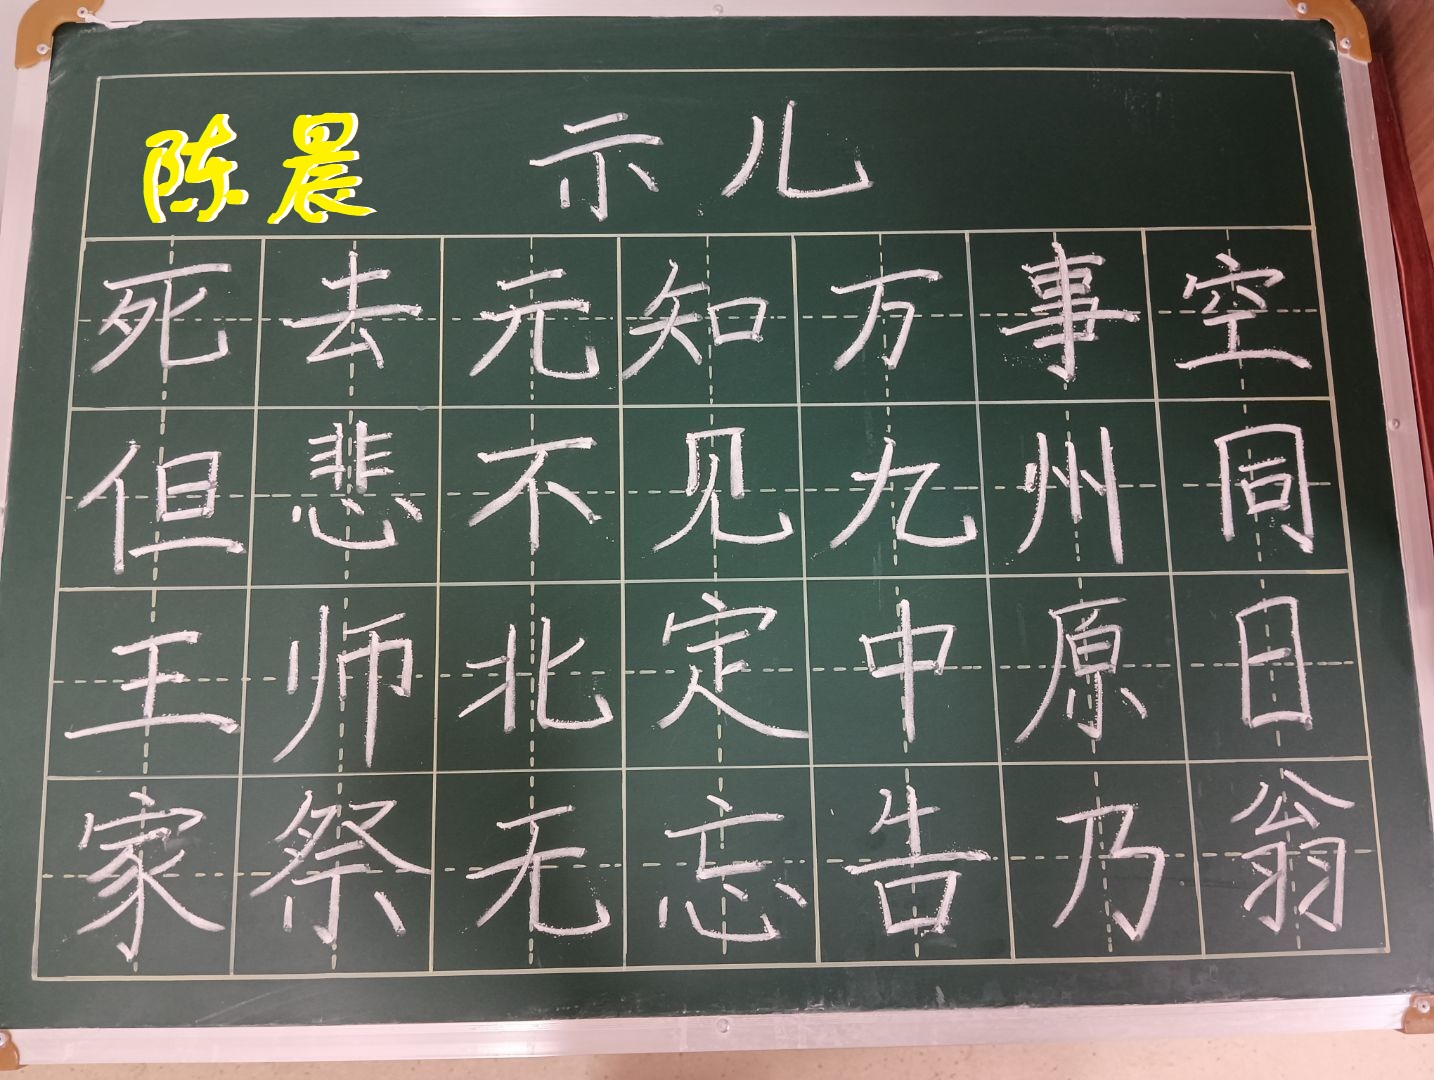 陈晨 示儿
死去元知万事空
但悲不见九州同
王师北定中原日
家祭无忘告乃翁